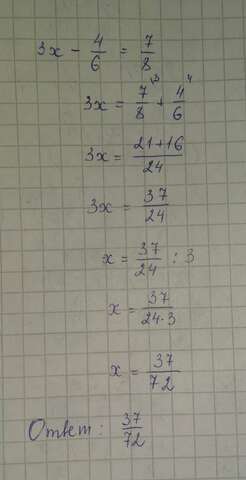 3x - 4/6 = 7/8
3x = 7/8 ³ + 4/6 ⁴
3x = 21+16/24
3x = 37/24
x = 37/24 : 3
x = 37/24·3
x = 37/72
Ответ: 37/72